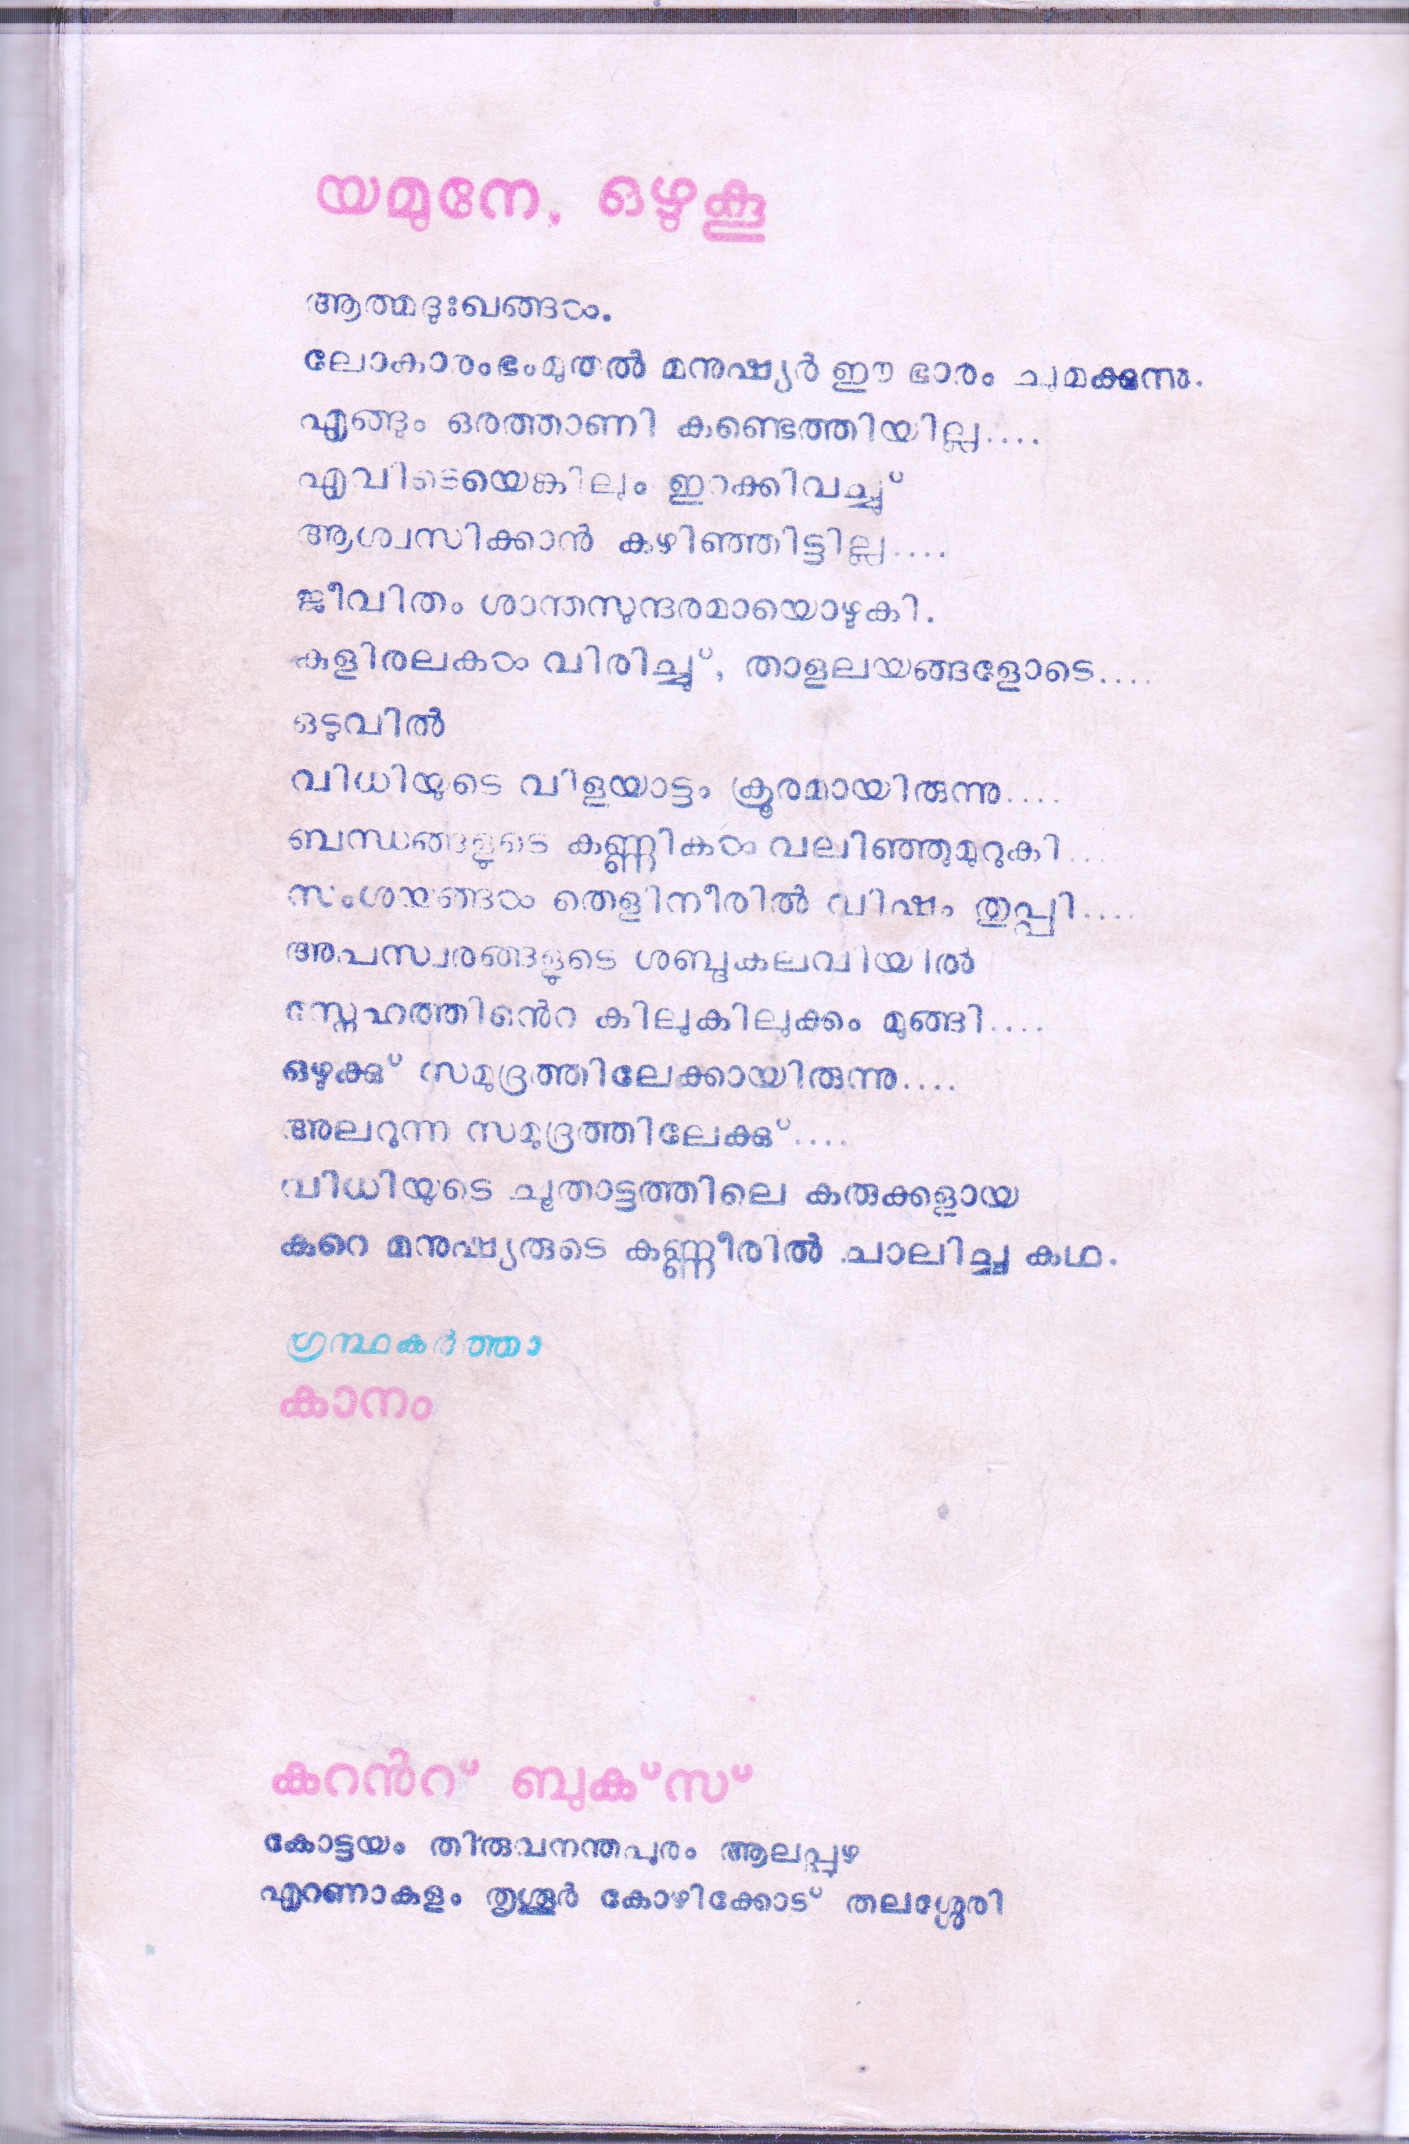 യമുനേ, ഒഴുകൂ
ആത്മദുഃഖങ്ങൾ.
ലോകാരംഭംമുതൽ മനുഷ്യർ ഈ ഭാരം ചുമക്കുന്നു.
എങ്ങും ഒരത്താണി കണ്ടെത്തിയില്ല....
എവിടെയെങ്കിലും ഇറക്കിവച്ചു്
ആശ്വസിക്കാൻ കഴിഞ്ഞിട്ടില്ല....
ജീവിതം ശാന്തസുന്ദരമായൊഴുകി.
കുളിരലകൾ വിരിച്ചു്, താളലയങ്ങളോടെ....
ഒടുവിൽ
വിധിയുടെ വിളയാട്ടം ക്രൂരമായിരുന്നു....
ബന്ധങ്ങളുടെ കണ്ണികൾ വലിഞ്ഞുമുറുകി....
സംശയങ്ങൾ തെളിനീരിൽ വിഷം തുപ്പി....
അപസ്വരങ്ങളുടെ ശബ്ദകലവിയിൽ
സ്നേഹത്തിൻെറ കിലുകിലുക്കം മുങ്ങി....
ഒഴുക്കു് സമുദ്രത്തിലേക്കായിരുന്നു....
അലറുന്ന സമുദ്രത്തിലേക്കു്....
വിധിയുടെ ചൂതാട്ടത്തിലെ കരുക്കളായ
കുറെ മനുഷ്യരുടെ കണ്ണീരിൽ ചാലിച്ച കഥ.
ഗ്രന്ഥകർത്താ
കാനം
കറൻറ് ബുക്സ്
കോട്ടയം തിരുവനന്തപുരം ആലപ്പുഴ
എറണാകുളം തൃശ്ശൂർ കോഴിക്കോട് തലശ്ശേരി